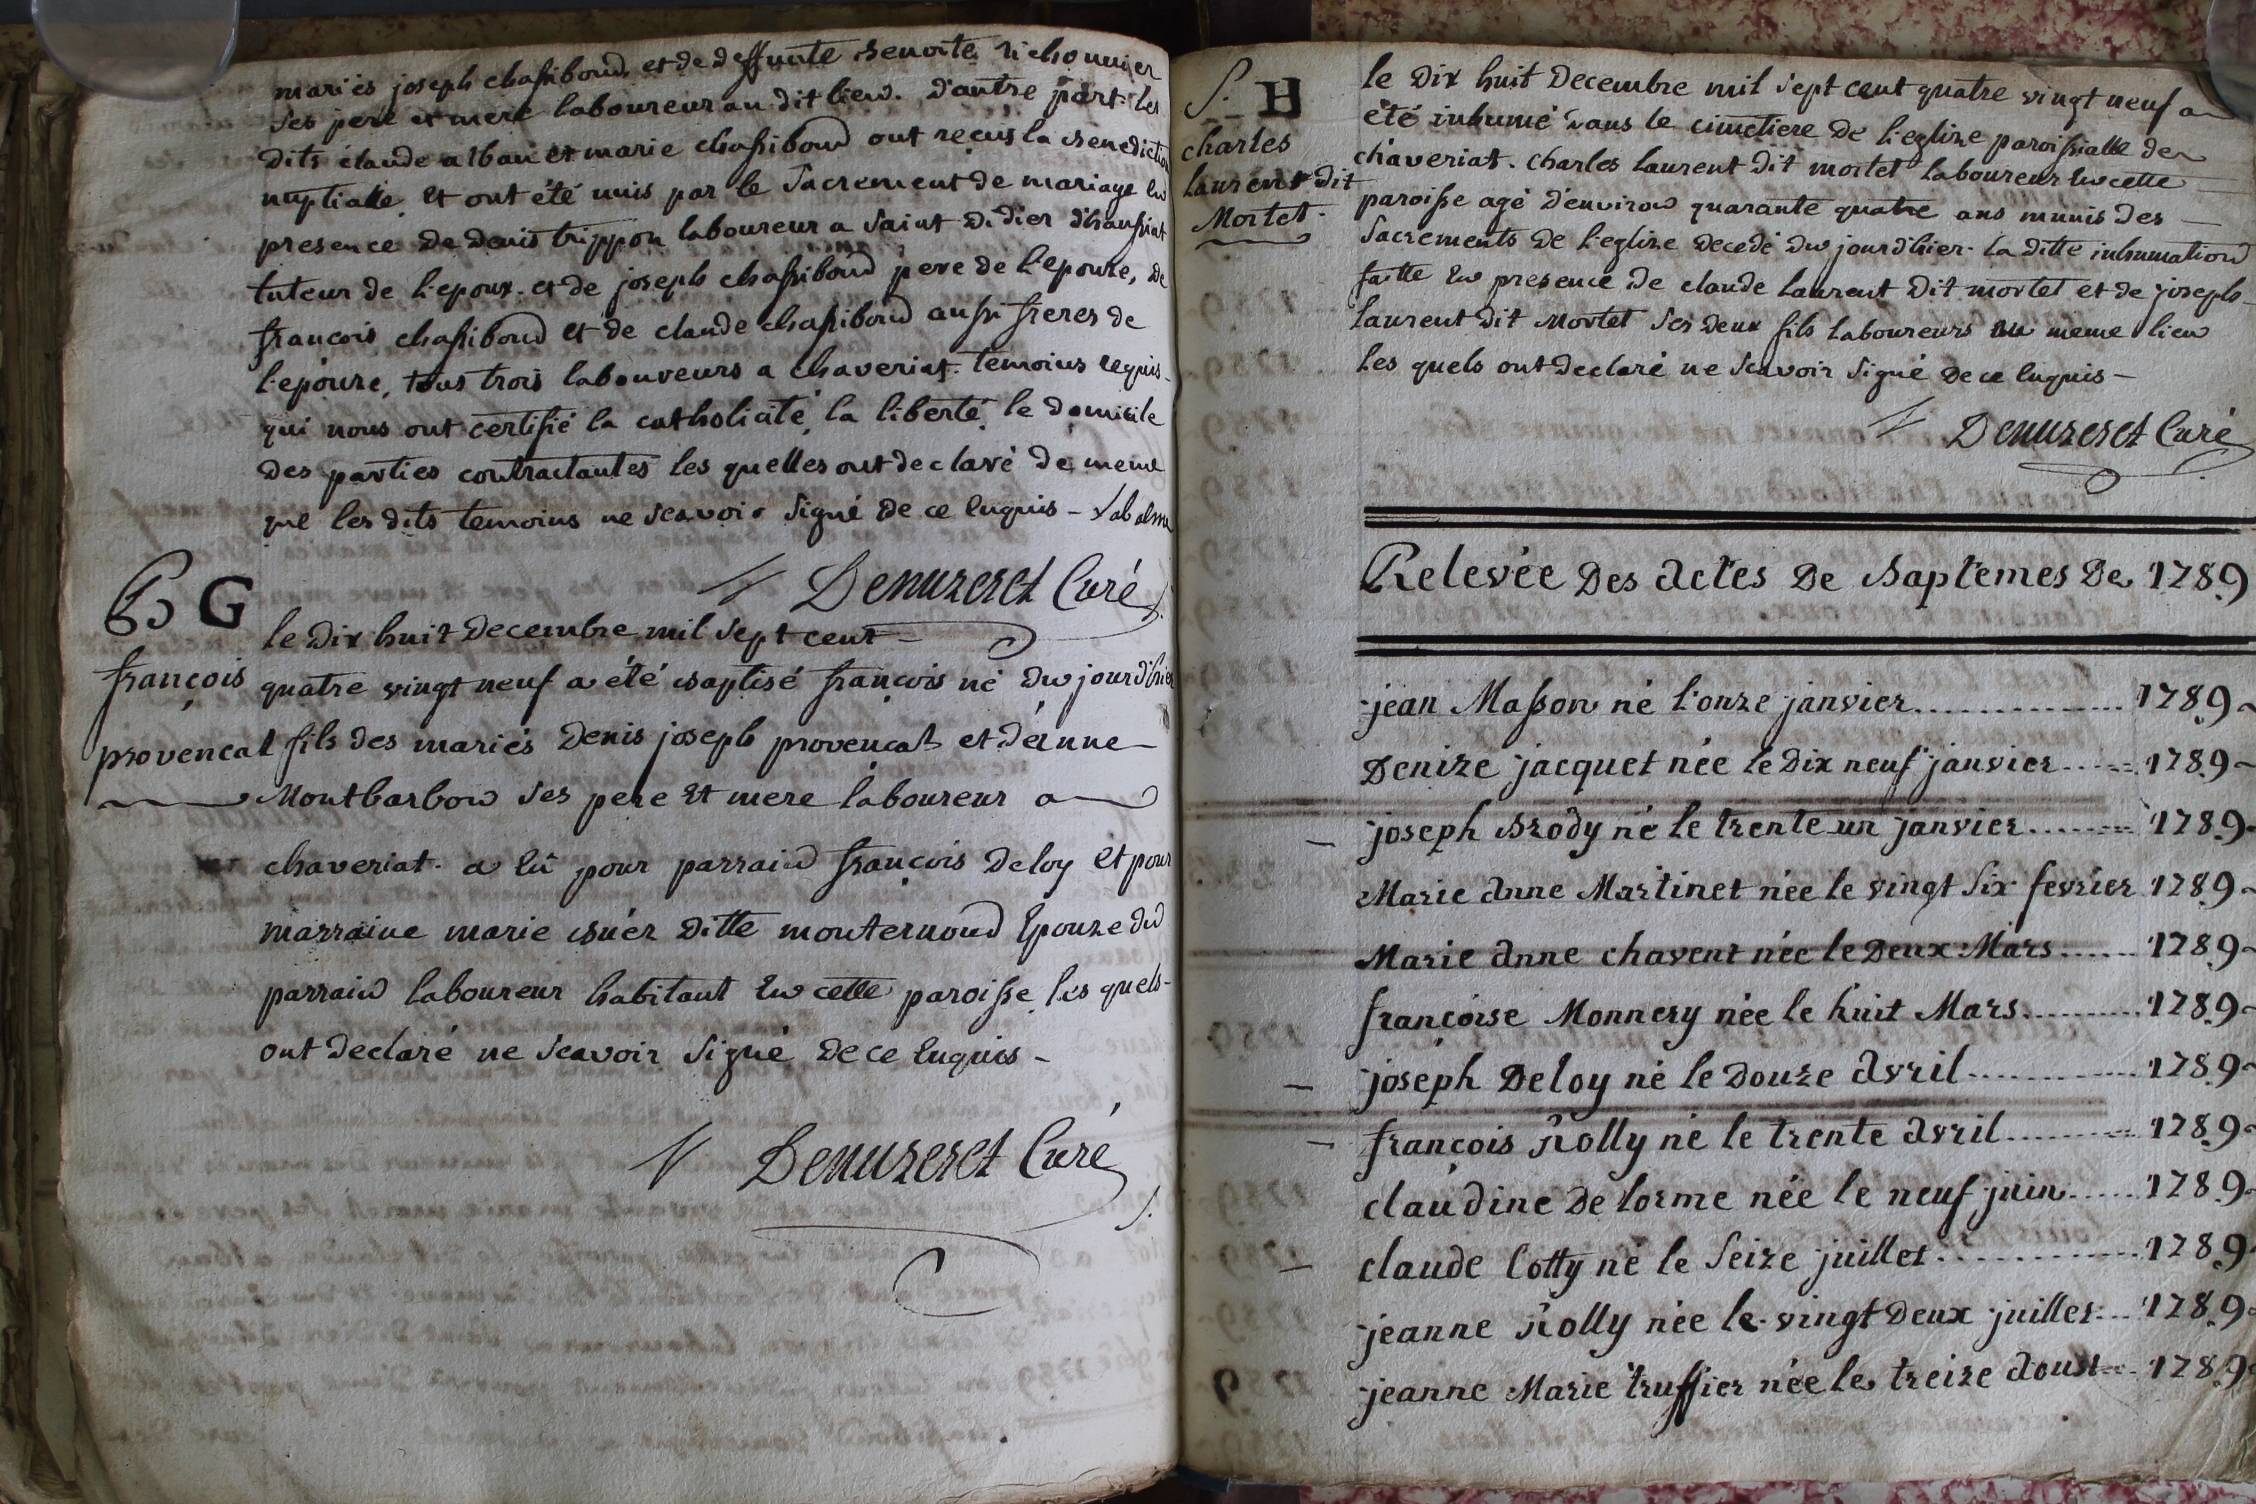 mariés joseph chassiboud et de deffunte Benoite richonnier
ses pere et mere laboureur au dit lieu. d'autre part. les
dits claude alban et marie chassiboud ont reçus la Benediction
nuptialle et ont été unis par le Sacrement de mariage en
presence de denis trippon laboureur a Saint Didier
tuteur de l'epoux. et de joseph chassiboud pere de l'epouze, de
françois chassiboud et de claude chassiboud aussi freres de
l'epouze, tous trois laboureurs a chaveriat. temoins requis
qui nous ont certifié la catholicité, la liberté, le domicile
des parties contractantes les quelles ont declaré de meme
que les dits temoins ne scavoir signé de ce enquis –
Denuzeret Curé
B G
le dix huit decembre mil sept cent
françois
quatre vingt neuf a été Baptisé françois né du jourd'hier
provencat
fils des mariés Denis joseph provençat et d'anne
Montbarbon ses pere et mere laboureur a
chaveriat. a eû pour parrain françois Deloy et pour
marraine marie Buér ditte monternoud Epouze du
parrain laboureur habitant en cette paroisse les quels
ont declaré ne scavoir signé de ce enquis –
Denuzeret Curé
S. H
charles
laurent dit
Mortet.
le dix huit Decembre mil sept cent quatre vingt neuf a
été inhumé dans le cimetiere de l'eglize paroissialle de
chaveriat. charles laurent dit mortet laboureur en cette
paroisse agé d'environ quarante quatre ans munis des
Sacrements de l'eglize decedé du jourd'hier. la ditte inhumation
faitte en presence de claude laurent dit mortet et de joseph
laurent dit Mortet ses deux fils laboureurs au meme lieu
les quels ont declaré ne scavoir signé de ce enquis –
Denuzeret Curé
Relevée des actes de Baptemes de 1789
jean Masson né l'onze janvier 1789
Denize jacquet née le dix neuf janvier 1789
joseph Brody né le trente un janvier 1789
Marie anne Martinet née le vingt six fevrier 1789
Marie anne chavent née le deux Mars 1789
françoise Monnery née le huit Mars 1789
joseph Deloy né le douze avril 1789
françois Rolly né le trente avril 1789
claudine De lorme née le neuf juin 1789
claude Cotty né le seize juillet 1789
jeanne Rolly née le vingt deux juillet 1789
jeanne Marie truffier née le treize aoust 1789